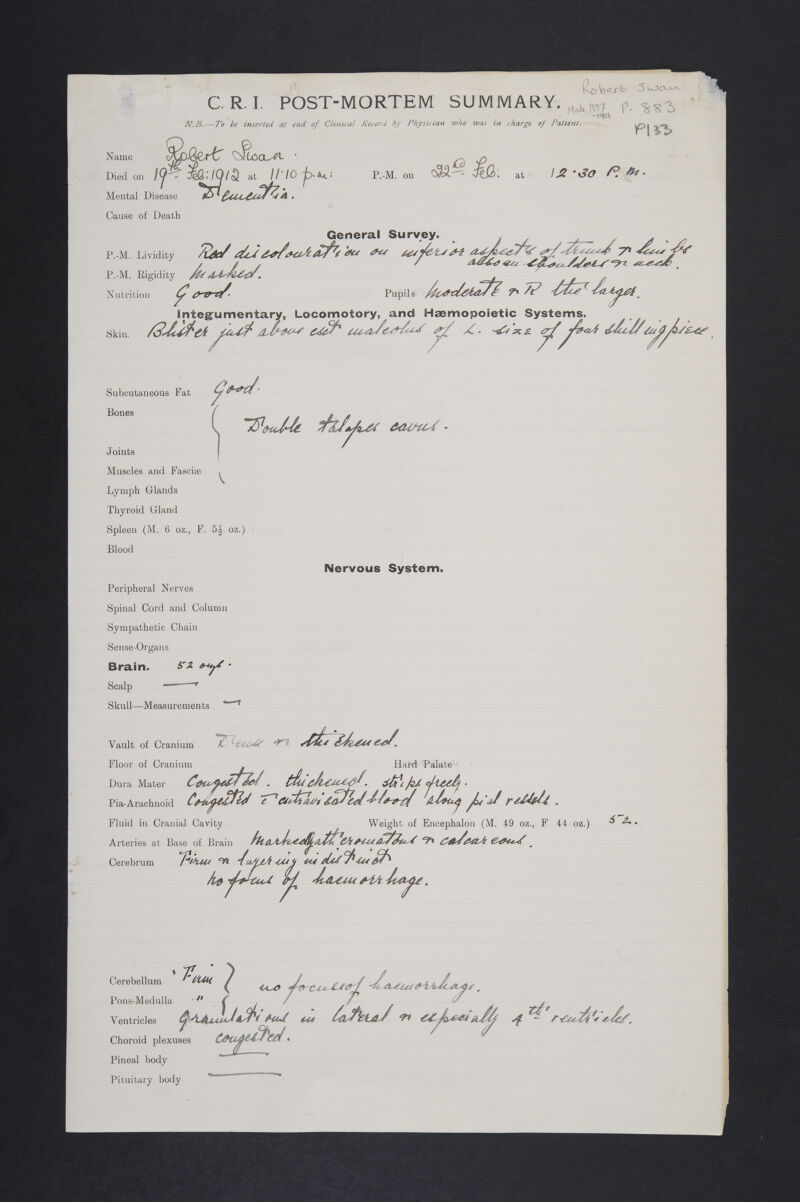 Robert Swan
C. R. I. POST-MORTEM SUMMARY. Male 1897 P. 883
-1901
N.B.—To be inserted at end of Clinical Record by Physician who was in charge of Patient.
P133
Name Robert Swan.
Died on 19th Feb: 1912 at 11.10 p.m: P.-M. on 22nd Feb. at 12.30 P.M.
Mental Disease Dementia.
Cause of Death
General Survey.
P.-M. Lividity Red discolouration on inferior aspects of trunk & limbs
also on shoulders & neck.
P.-M. Rigidity Marked.
Nutrition Good. Pupils Moderate & R the larger.
Integumentary, Locomotory, and Hæmopoietic Systems.
Skin. Blister just above ext malleolus of L. size of four shilling piece.
Subcutaneous Fat Good.
Bones
Double talipes cavus.
Joints
Muscles and Fasciæ
Lymph Glands
Thyroid Gland
Spleen (M. 6 oz., F. 5½ oz.)
Blood
Nervous System.
Peripheral Nerves
Spinal Cord and Column
Sympathetic Chain
Sense-Organs
Brain. 52 ozs.
Scalp —
Skull—Measurements —
Vault of Cranium Dense & thickened.
Floor of Cranium Hard Palate
Dura Mater Congested. thickened. strips freely.
Pia-Arachnoid Congested c extravisated blood along pial vessels.
Fluid in Cranial Cavity Weight of Encephalon (M. 49 oz., F 44 oz.) 52.
Arteries at Base of Brain Markedly atheromatous & calcareous.
Cerebrum Firm & layering indistinct
No focus of haemorrhage.
Cerebellum Firm
no focus of haemorrhage.
Pons-Medulla "
Ventricles Granulations in lateral & especially 4th ventricles.
Choroid plexuses congested.
Pineal body —
Pituitary body —